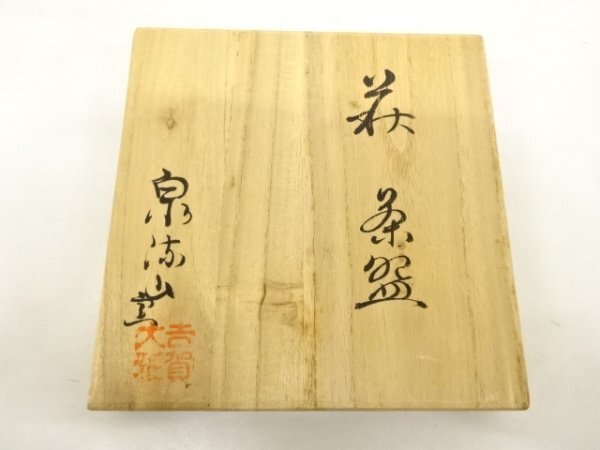 萩 茶盌
泉流山
吉賀
大